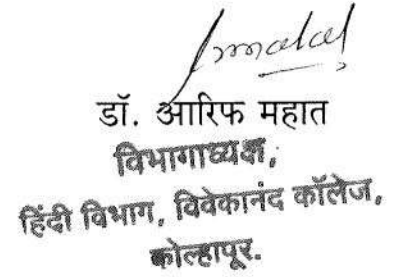 डॉ. आरिफ महात
विभागाध्यक्ष,
हिंदी विभाग, विवेकानंद कॉलेज,
कोल्हापूर.